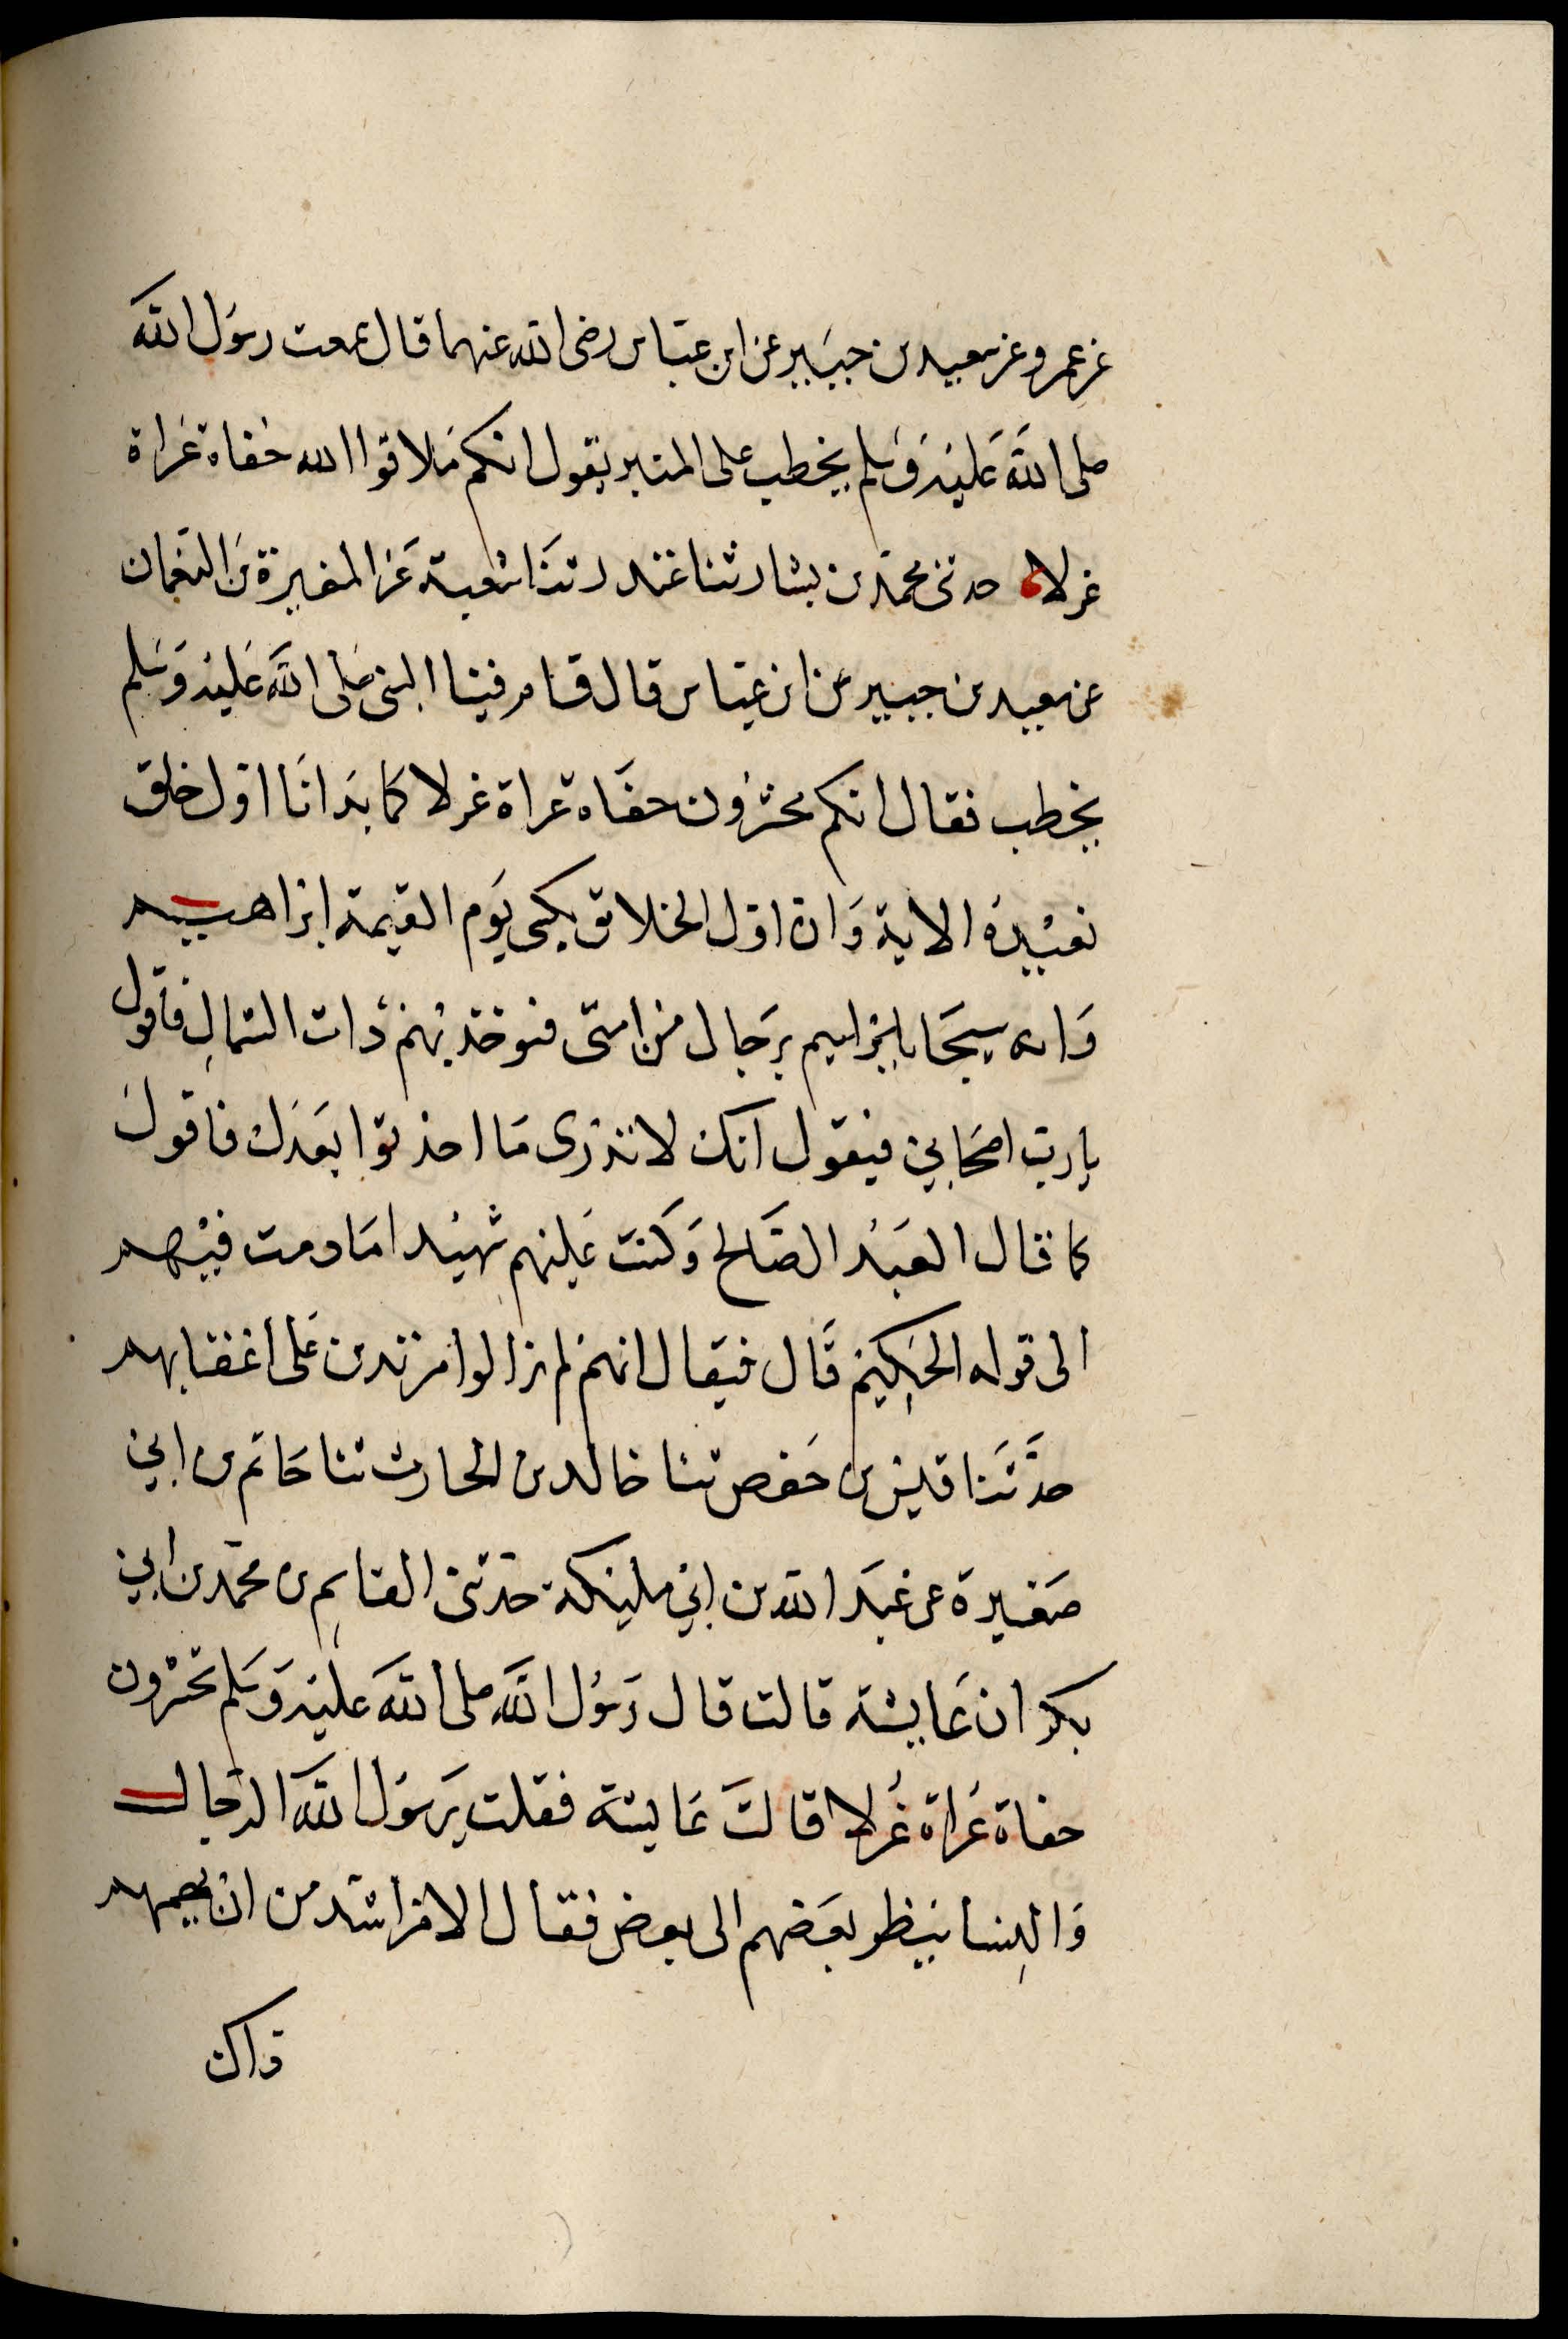 عن عمرو عن سعيد بن جبير عن ابن عباس رضى الله عنهما قال سمعت رسول الله
صلى الله عليه وسلم يخطب على المنبر يقول انكم ملاقوا الله حفاة عراة
غرلا حدثنى محمد بن بشار ثنا غندر ثنا شعبة عن المغيرة بن النعمان
عن سعيد بن جبير عن ابن عباس قال قام فينا النبى صلى الله عليه وسلم
يخطب فقال انكم محشرون حفاة عراة غرلا كما بدانا اول خلق
نعيده الاية وان اول الخلائق يكسى يوم القيمة ابراهيم
وانه سيجا برجال من امتى فيوخذ بهم ذات الشمال فاقول
يارب اصحابي فيقول انك لا تدرى ما احدثوا بعدك فاقول
كما قال العبد الصالح وكنت عليهم شهيدا مادمت فيهم
الى قوله الحكيم قال فيقال انهم لم يزالوا مرتدين على اعقابهم
حدثنا قيس بن حفص ثنا خالد بن الحارث ثنا حاتم بن ابي
صغيرة عن عبد الله بن ابي مليكة حدثنى القاسم بن محمد بن ابي
بكر ان عايشة قالت قال رسول الله صلى الله عليه وسلم تحشرون
حفاة عراة غرلا قالت عايشة فقلت يرسول الله الرجال
والنسا ينظر بعضهم الى بعض فقال الامر اشد من ان يهمهم
ذاك